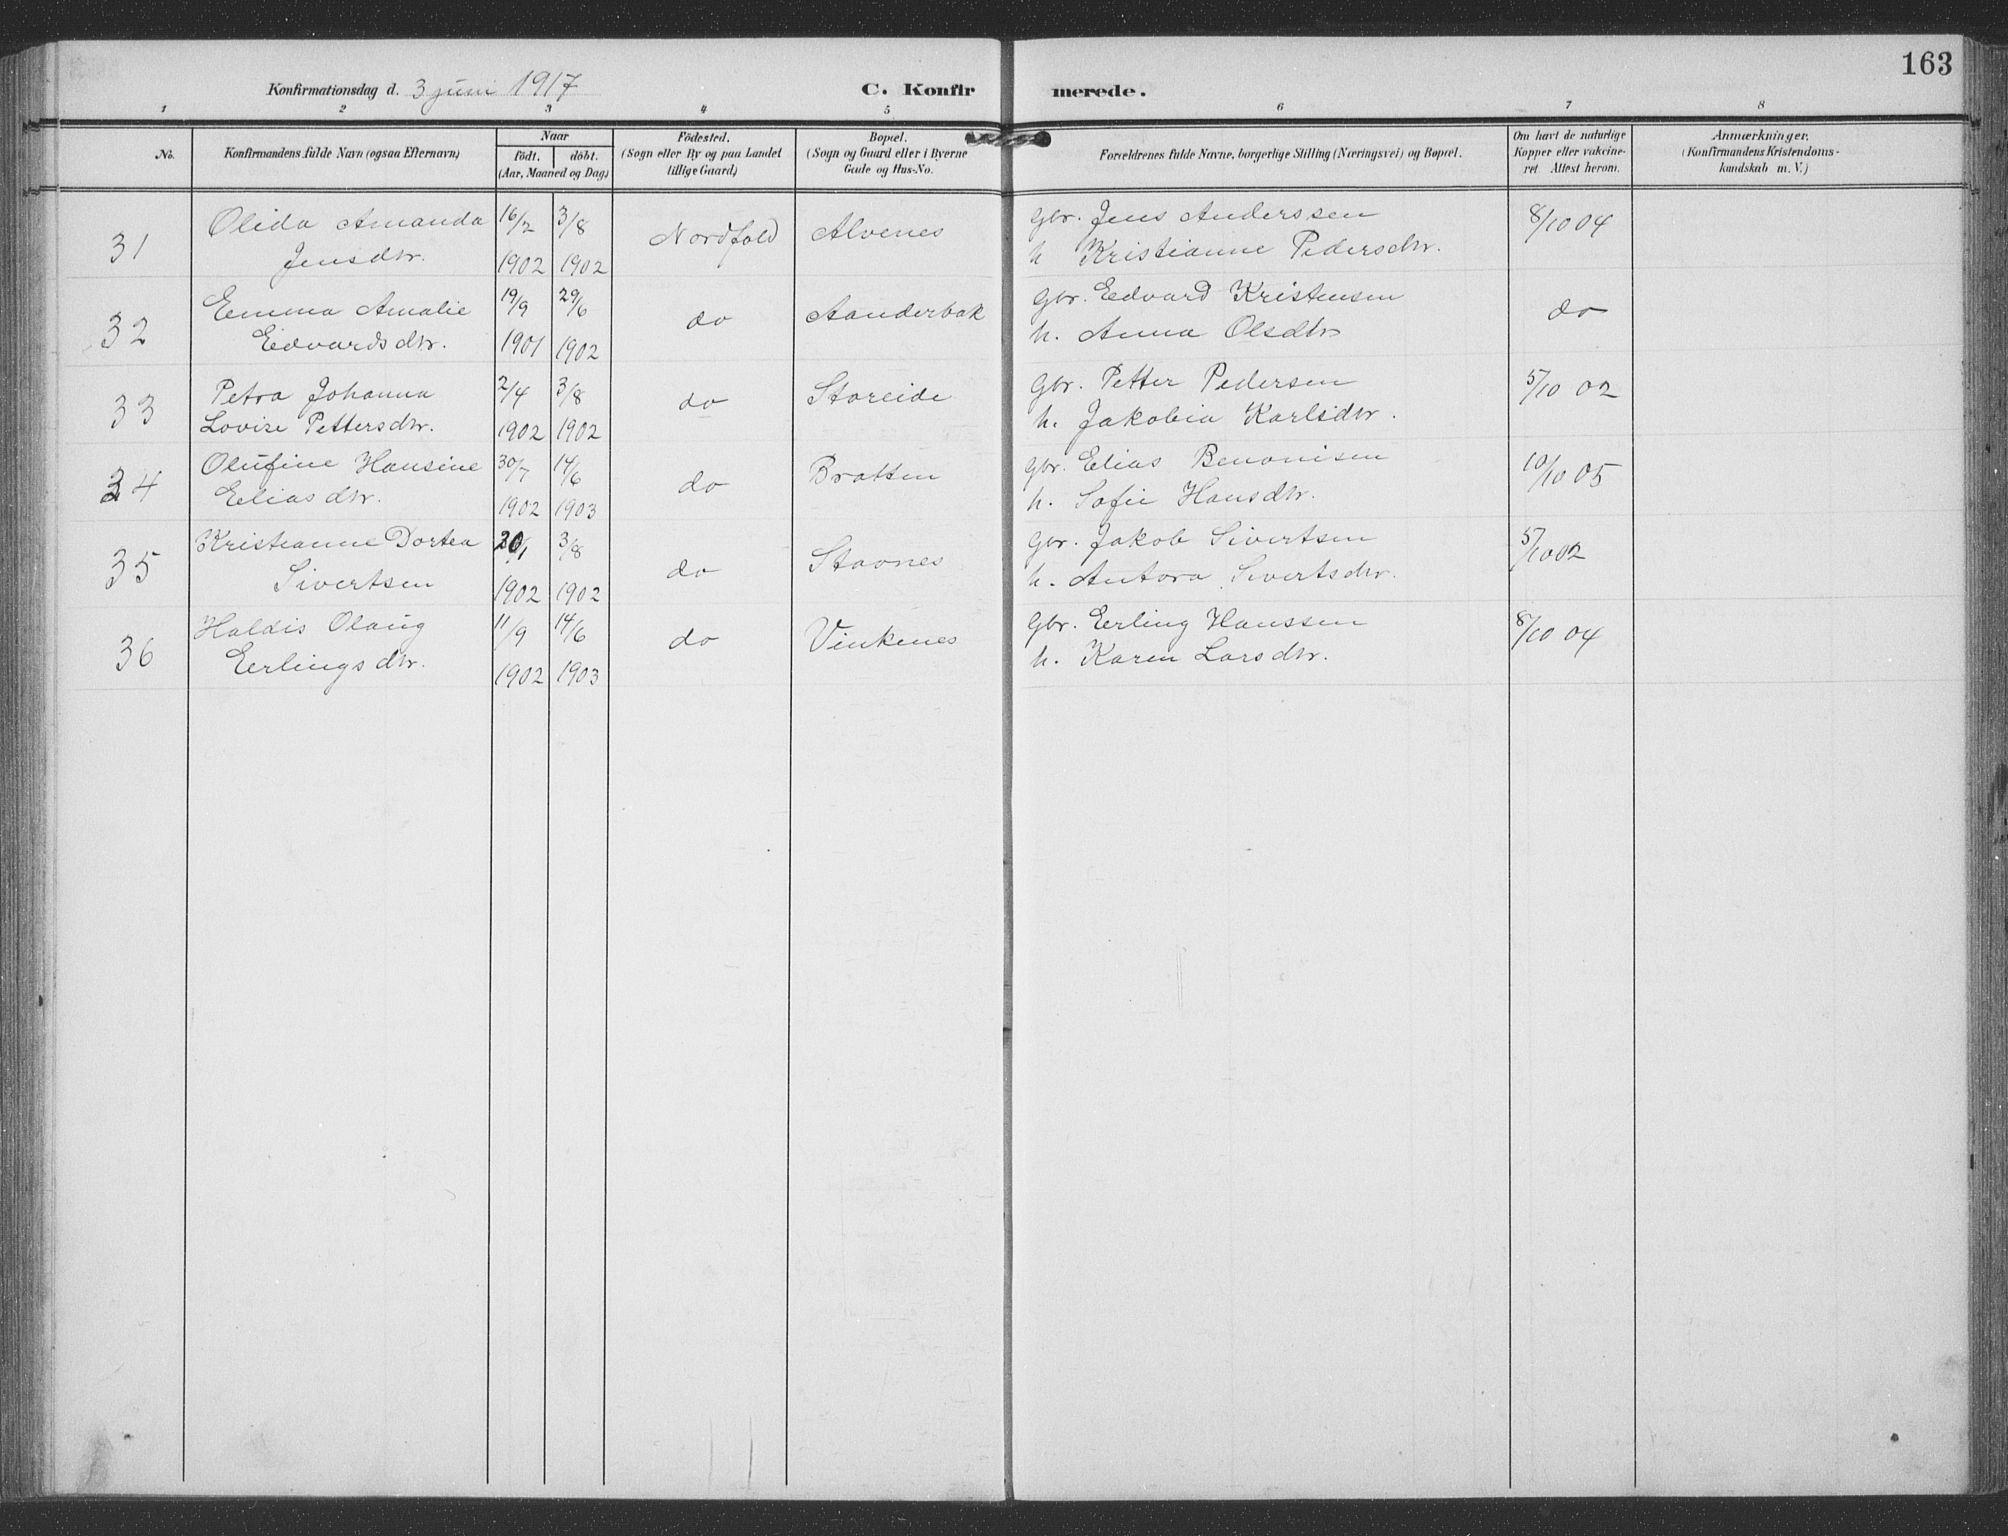 163
Konfirmationsdag d. 3 juni 1917 C. Konfirmerede.
1 2 3 4 5 6 7 8
No.
Konfirmandens fulde Navn (ogsaa Efternavn)
Naar
födt. döbt.
(Aar, Maaned og Dag)
Födested.
(Sogn eller By og paa Landet
tillige Gaard)
Bopæl.
(Sogn og Gaard eller i Byerne
Gade og Hus-No.
Forældrenes fulde Navne, borgerlige Stilling (Næringsvei) og Bopæl.
Om havt de naturlige
Kopper eller vakcine-
ret. Attest herom.
Anmærkninger.
(Konfirmandens Kristendoms-
kundskab m. V.)
31 Olida Amanda 16/2 3/8 Nordfold Alvenes Gbr. Jens Anderssen 8/10 04
Jensdtr. 1902 1902 h Kristianne Pedersdtr.
32 Emma Amalie 19/9 29/6 do Aanderbak Gbr. Edvard Kristensen do
Edvardsdtr. 1901 1902 h. Anna Olsdtr
33 Petra Johanna 2/4 3/8 do Storeide Gbr. Petter Pedersen 5/10 02
Lovise Pettersdtr. 1902 1902 h. Jakobia Karlsdtr.
34 Olufine Hansine 30/7 14/6 do Bratten Gbr. Elias Benonisen 10/10 05
Eliasdtr. 1902 1903 h. Sofie Hansdtr.
35 Kristianne Dortea 20/1 3/8 do Stavnes Gbr. Jakob Sivertsen 5/10 02
Sivertsen 1902 1902 h. Antora Sivertsdtr.
36 Haldis Olaug 11/9 14/6 do Vinkenes Gbr. Erling Hanssen 8/10 04
Erlingsdtr. 1902 1903 h. Karen Larsdtr.